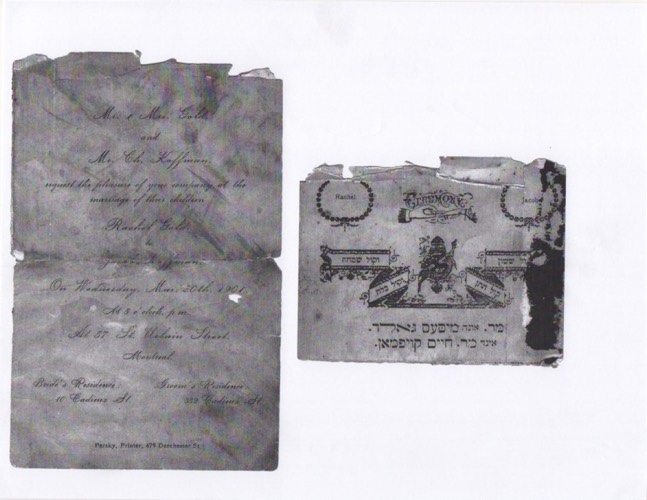 Mr. & Mrs. Gold,
and
Mr. Ch. Koffman,
request the pleasure of your company at the
marriage of their children
Rachel Gold
&
Koffman
On Wednesday, Mar. 20th. 190
At 5 o'clock, p.m.
At 37 St. Urbain Street.
Montreal
Bride's Residence: Groom's Residence:
10 Cadieux St. Cadieux St.
Parsky, Printer, 479 Dorchester St.
Rachel
CEREMONY
Jacob
וקול שמחה
קול ששון
וקול כלה
קול חתן
מר. אונד מיסעס גאלד.
אונד מר. חיים קויפמאן.